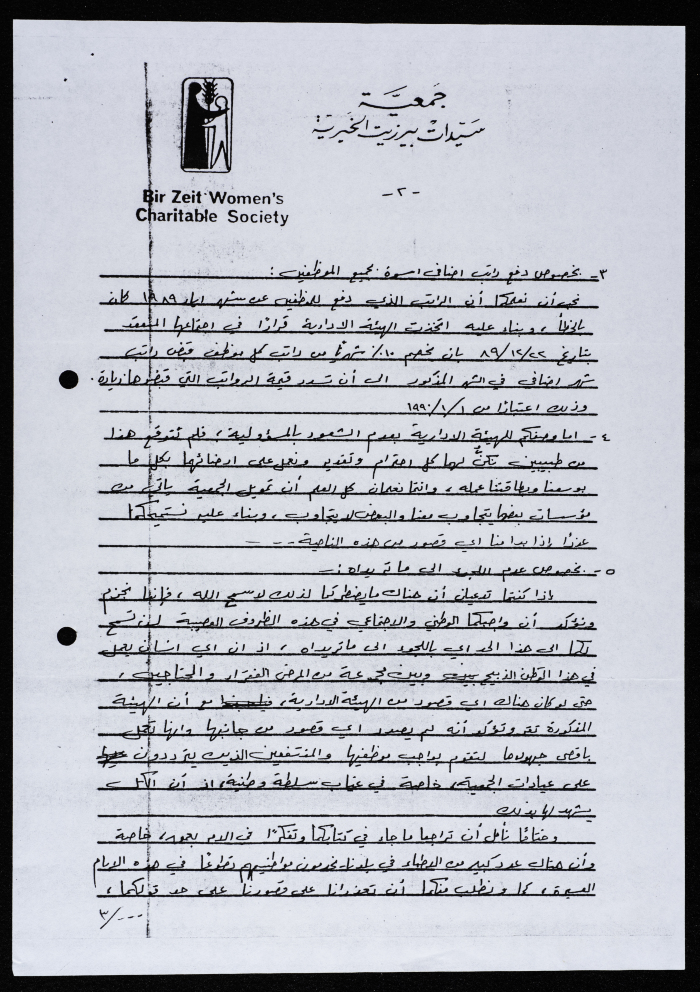 جمعية
سيدات بيرزيت الخيرية
Bir Zeit Women's
Charitable Society
- ٢ -
٣- بخصوص دفع راتب اضافي اسوة بجميع الموظفين :
نحب أن نعلمكما أن الراتب الذي دفع للموظفين عن شهر ايار ١٩٨٩ كان
بالخطأ ، وبناء عليه اتخذت الهيئة الادارية قرارًا في اجتماعها المنعقد
بتاريخ ٨٩/١٢/٢٢ بان يخصم ١٠٪ شهريًا من راتب كل موظف قبض راتب
شهر اضافي في الشهر المذكور الى أن تسدد قيمة الرواتب التي قبضوها زيادة .
وذلك اعتبارًا من ١٩٩٠/١/١
٤- اما وصفكم للهيئة الادارية بعدم الشعور بالمسؤولية ، فلم نتوقع هذا
من طبيبين نكنّ لهما كل احترام وتقدير ونعمل على ارضائهما بكل ما
بوسعنا وبطاقتنا عمله ، وانتما تعلمان كل العلم أن تمويل الجمعية يأتي من
مؤسسات بعضها يتجاوب معنا والبعض لا يتجاوب ، وبناء عليه نستميحكما
عذرًا إذا بدا منا اي قصور من هذه الناحية ---
٥- بخصوص عدم اللجوء الى ما تريداه :-
إذا كنتما تدعيان أن هناك ما يضطركما لذلك لا سمح الله ، فإننا نجزم
ونؤكد أن واجبكما الوطني والاجتماعي في هذه الظروف العصيبة لن تسمح
لكما الى هذا الحد اي باللجوء الى ما تريداه ، اذ ان اي انسان يعمل
في هذا الوطن الذبيح وبين مجموعة من المرضى الفقراء والمحتاجين ،
حتى لو كان هناك اي قصور من الهيئة الادارية ، مع أن الهيئة
المذكورة تقر وتؤكد أنه لم يصدر اي قصور من جانبها وانها تعمل
باقصى جهودها لتقوم بواجب موظفيها والمنتفعين الذين يترددون
على عيادات الجمعية ، خاصة في غياب سلطة وطنية ، اذ أن الكل
يشهد لها بذلك
وختامًا نأمل أن تراجعا ما جاء في كتابكما وتفكرا في الامر بعمق ، خاصة
وأن هناك عدد كبير من الاطباء في بلدنا يخدمون مواطنيهم تطوعًا في هذه الايام
العسيرة ، كما ونطلب منكما أن تعذرانا على قصورنا على حد قولكما ،
٣/---